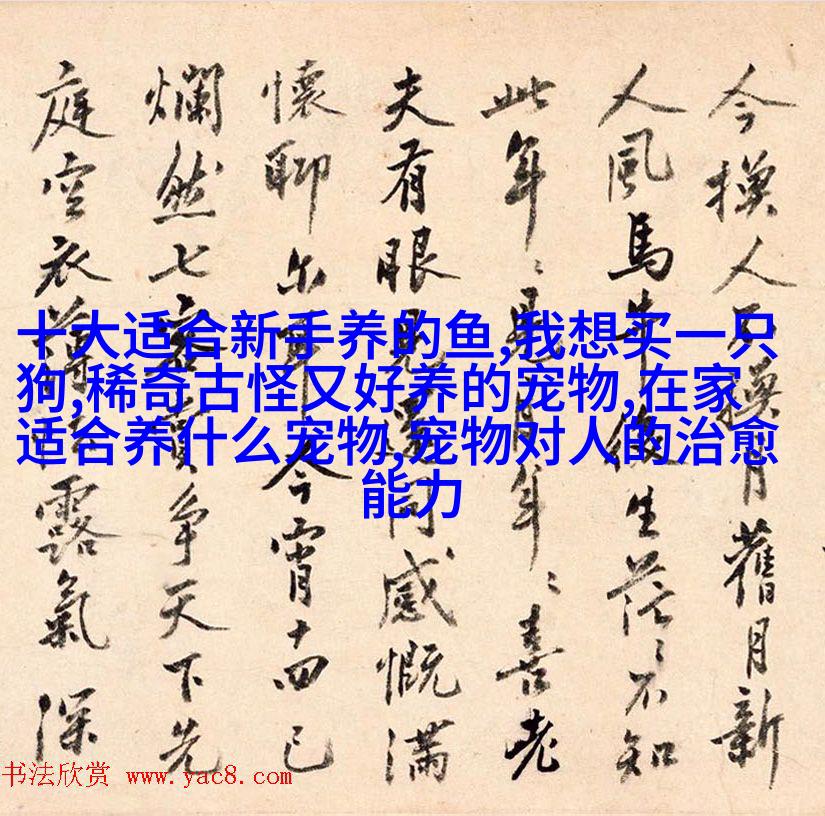 今換人不換月舊月新
人風馬牛生茫〻不知
此年〻是月年〻喜老
夫有眼見同感慨滿
懷聊尔耳今宵十四已
爛然七爭天下先
庭空衣薄露氣深
十大适合新手养的鱼,我想买一只
狗,稀奇古怪又好养的宠物,在家
适合养什么宠物,宠物对人的治愈
能力
书法欣赏 www.yac8.com